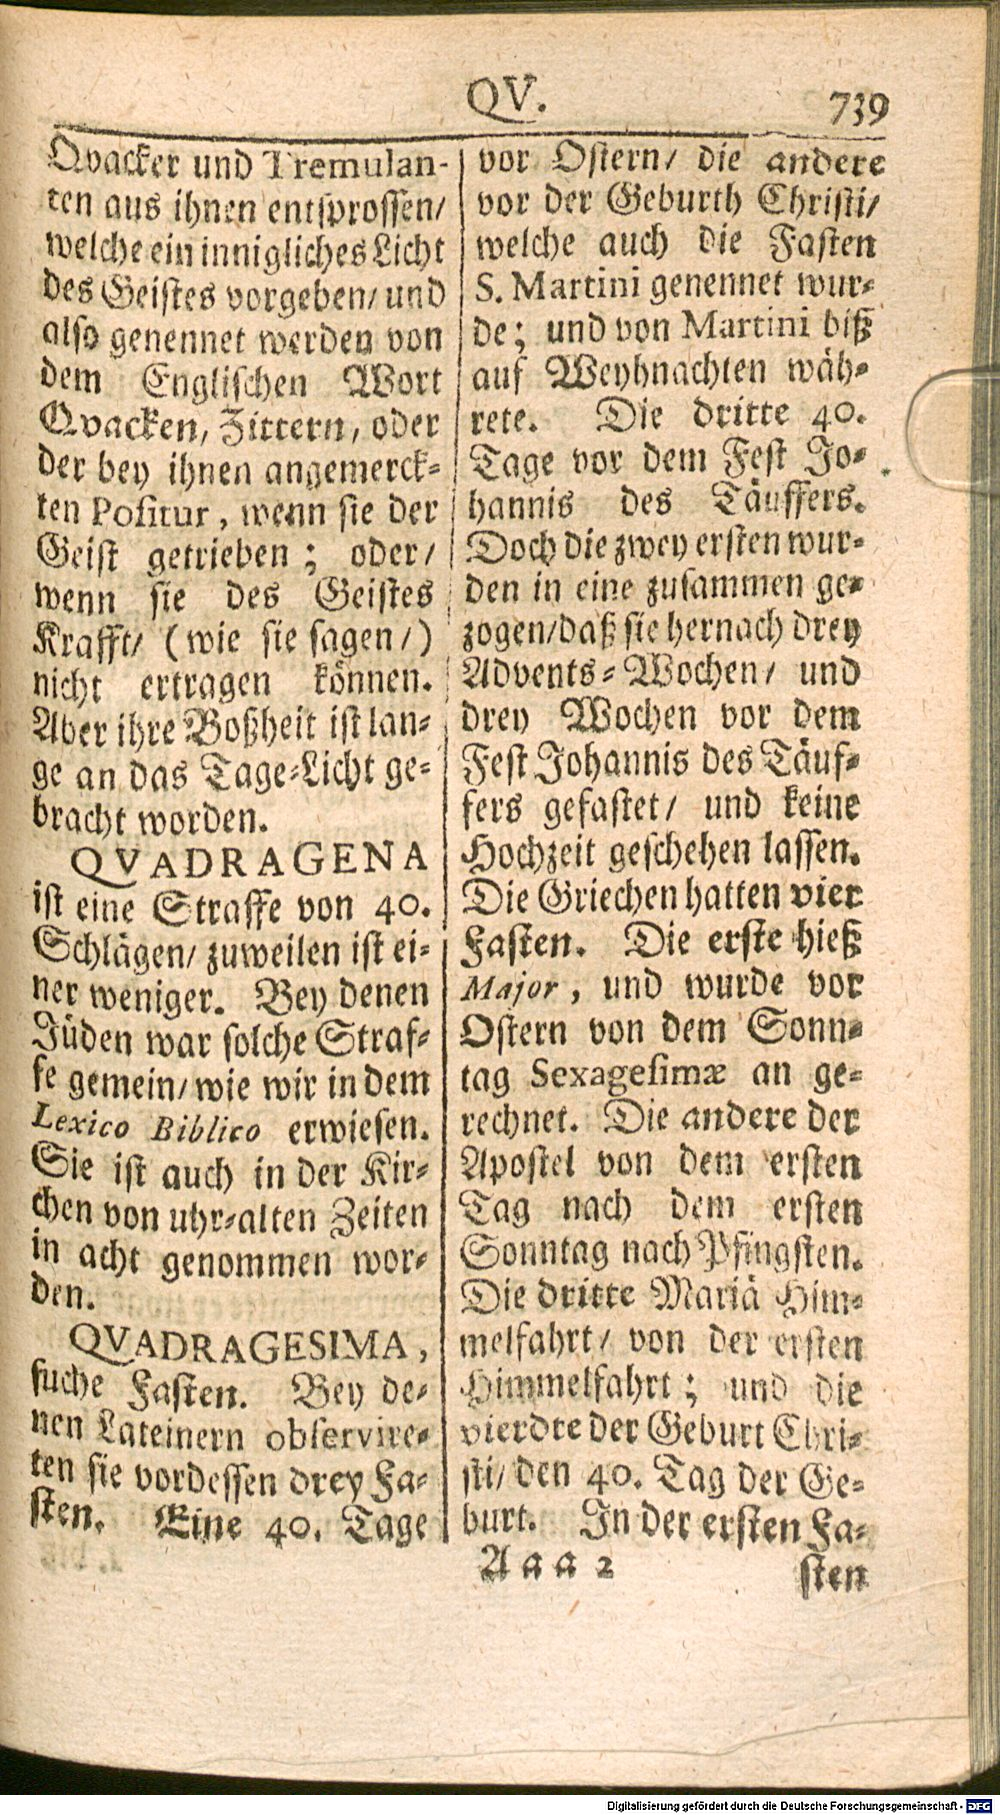 QV.
739
Qvacker und Tremulan-
ten aus ihnen entsprossen/
welche ein innigliches Licht
des Geistes vorgeben/ und
also genennet werden von
dem Englischen Wort
Qvacken, Zittern, oder
der bey ihnen angemerck-
ten Positur, wenn sie der
Geist getrieben; oder/
wenn sie des Geistes
Krafft/ (wie sie sagen/)
nicht ertragen können.
Aber ihre Boßheit ist lan-
ge an das Tage-Licht ge-
bracht worden.
QVADRAGENA
ist eine Straffe von 40.
Schlägen/ zuweilen ist ei-
ner weniger. Bey denen
Jüden war solche Straf-
fe gemein/ wie wir in dem
Lexico Biblico erwiesen.
Sie ist auch in der Kir-
chen von uhr-alten Zeiten
in acht genommen wor-
den.
QVADRAGESIMA,
suche Fasten. Bey de-
nen Lateinern observire-
ten sie vordessen drey Fa-
sten. Eine 40. Tage
vor Ostern/ die andere
vor der Geburth Christi/
welche auch die Fasten
S. Martini genennet wur-
de; und von Martini biß
auf Weyhnachten wäh-
rete. Die dritte 40.
Tage vor dem Fest Jo-
hannis des Täuffers.
Doch die zwey ersten wur-
den in eine zusammen ge-
zogen/daß sie hernach drey
Advents-Wochen/ und
drey Wochen vor dem
Fest Johannis des Täuf-
fers gefastet/ und keine
Hochzeit geschehen lassen.
Die Griechen hatten vier
Fasten. Die erste hieß
Major, und wurde vor
Ostern von dem Sonn-
tag Sexagesimæ an ge-
rechnet. Die andere der
Apostel von dem ersten
Tag nach dem ersten
Sonntag nach Pfingsten.
Die dritte Mariä Him-
melfahrt/ von der ersten
Himmelfahrt; und die
vierdte der Geburt Chri-
sti/ den 40. Tag der Ge-
burt. In der ersten Fa-
Aaa 2
sten
Digitalisierung gefördert durch die Deutsche Forschungsgemeinschaft - DFG